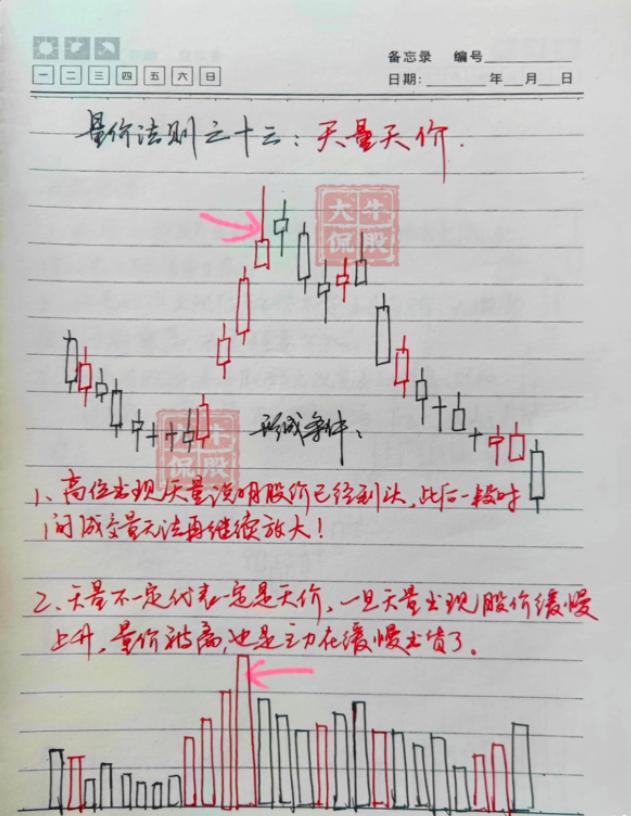 备忘录 编号
一 二 三 四 五 六 日
日期: 年 月 日
量价法则之十三：天量天价.
大牛
侃股
大牛
侃股
形成条件：
1、高位出现天量说明股价已经到头，此后一段时
间成交量无法再继续放大！
2、天量不一定代表一定是天价，一旦天量出现股价缓慢
上升，量价背离，也是主力在缓慢出货了。